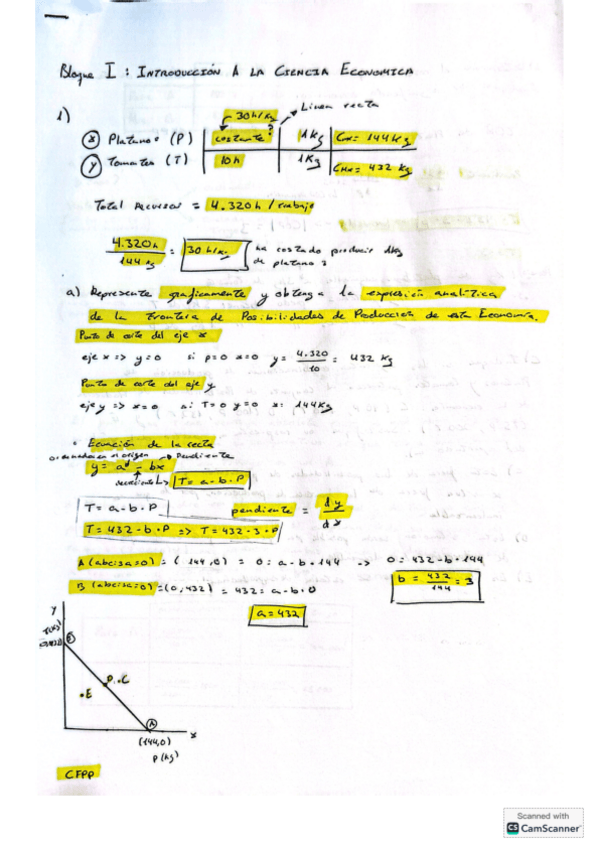 Bloque I : INTRODUCCIÓN A LA CIENCIA ECONOMICA
1)
30h/kg → Linea recta
x Platanos (P) costante? 1kg Cmx = 144 kg
y Tomates (T) 10h 1kg Cmx = 432 kg
TOTAL RECURSOS = 4.320h / trabajo
4.320h / 144 kg = 30 h/kg ha costado producir 1kg
de platano s
a) Represente graficamente y obtenga la expresión analitica
de la Frontera de Posibilidades de Producción de esta Economía.
Punto de corte del eje x
eje x => y=0 si p=0 x=0 y= 4.320 / 10 = 432 kg
Punto de corte del eje y
eje y => x=0 si T=0 y=0 x= 144kg
Ecuación de la recta
ordenada en el origen → Pendiente
y = a - bx
T = a - b · P
T = a - b · P pendiente = dy / dx
T = 432 - b · P => T = 432 - 3 · P
A (abcisa=0) = (144,0) = 0 = a - b · 144 -> 0 = 432 - b · 144
b = 432 / 144 = 3
B (abcisa=0) = (0,432) = 432 = a - b · 0
a = 432
y
T(kg)
B
D
C
E
A
x
(144,0)
P (kg)
CFPP
Scanned with
CS CamScanner